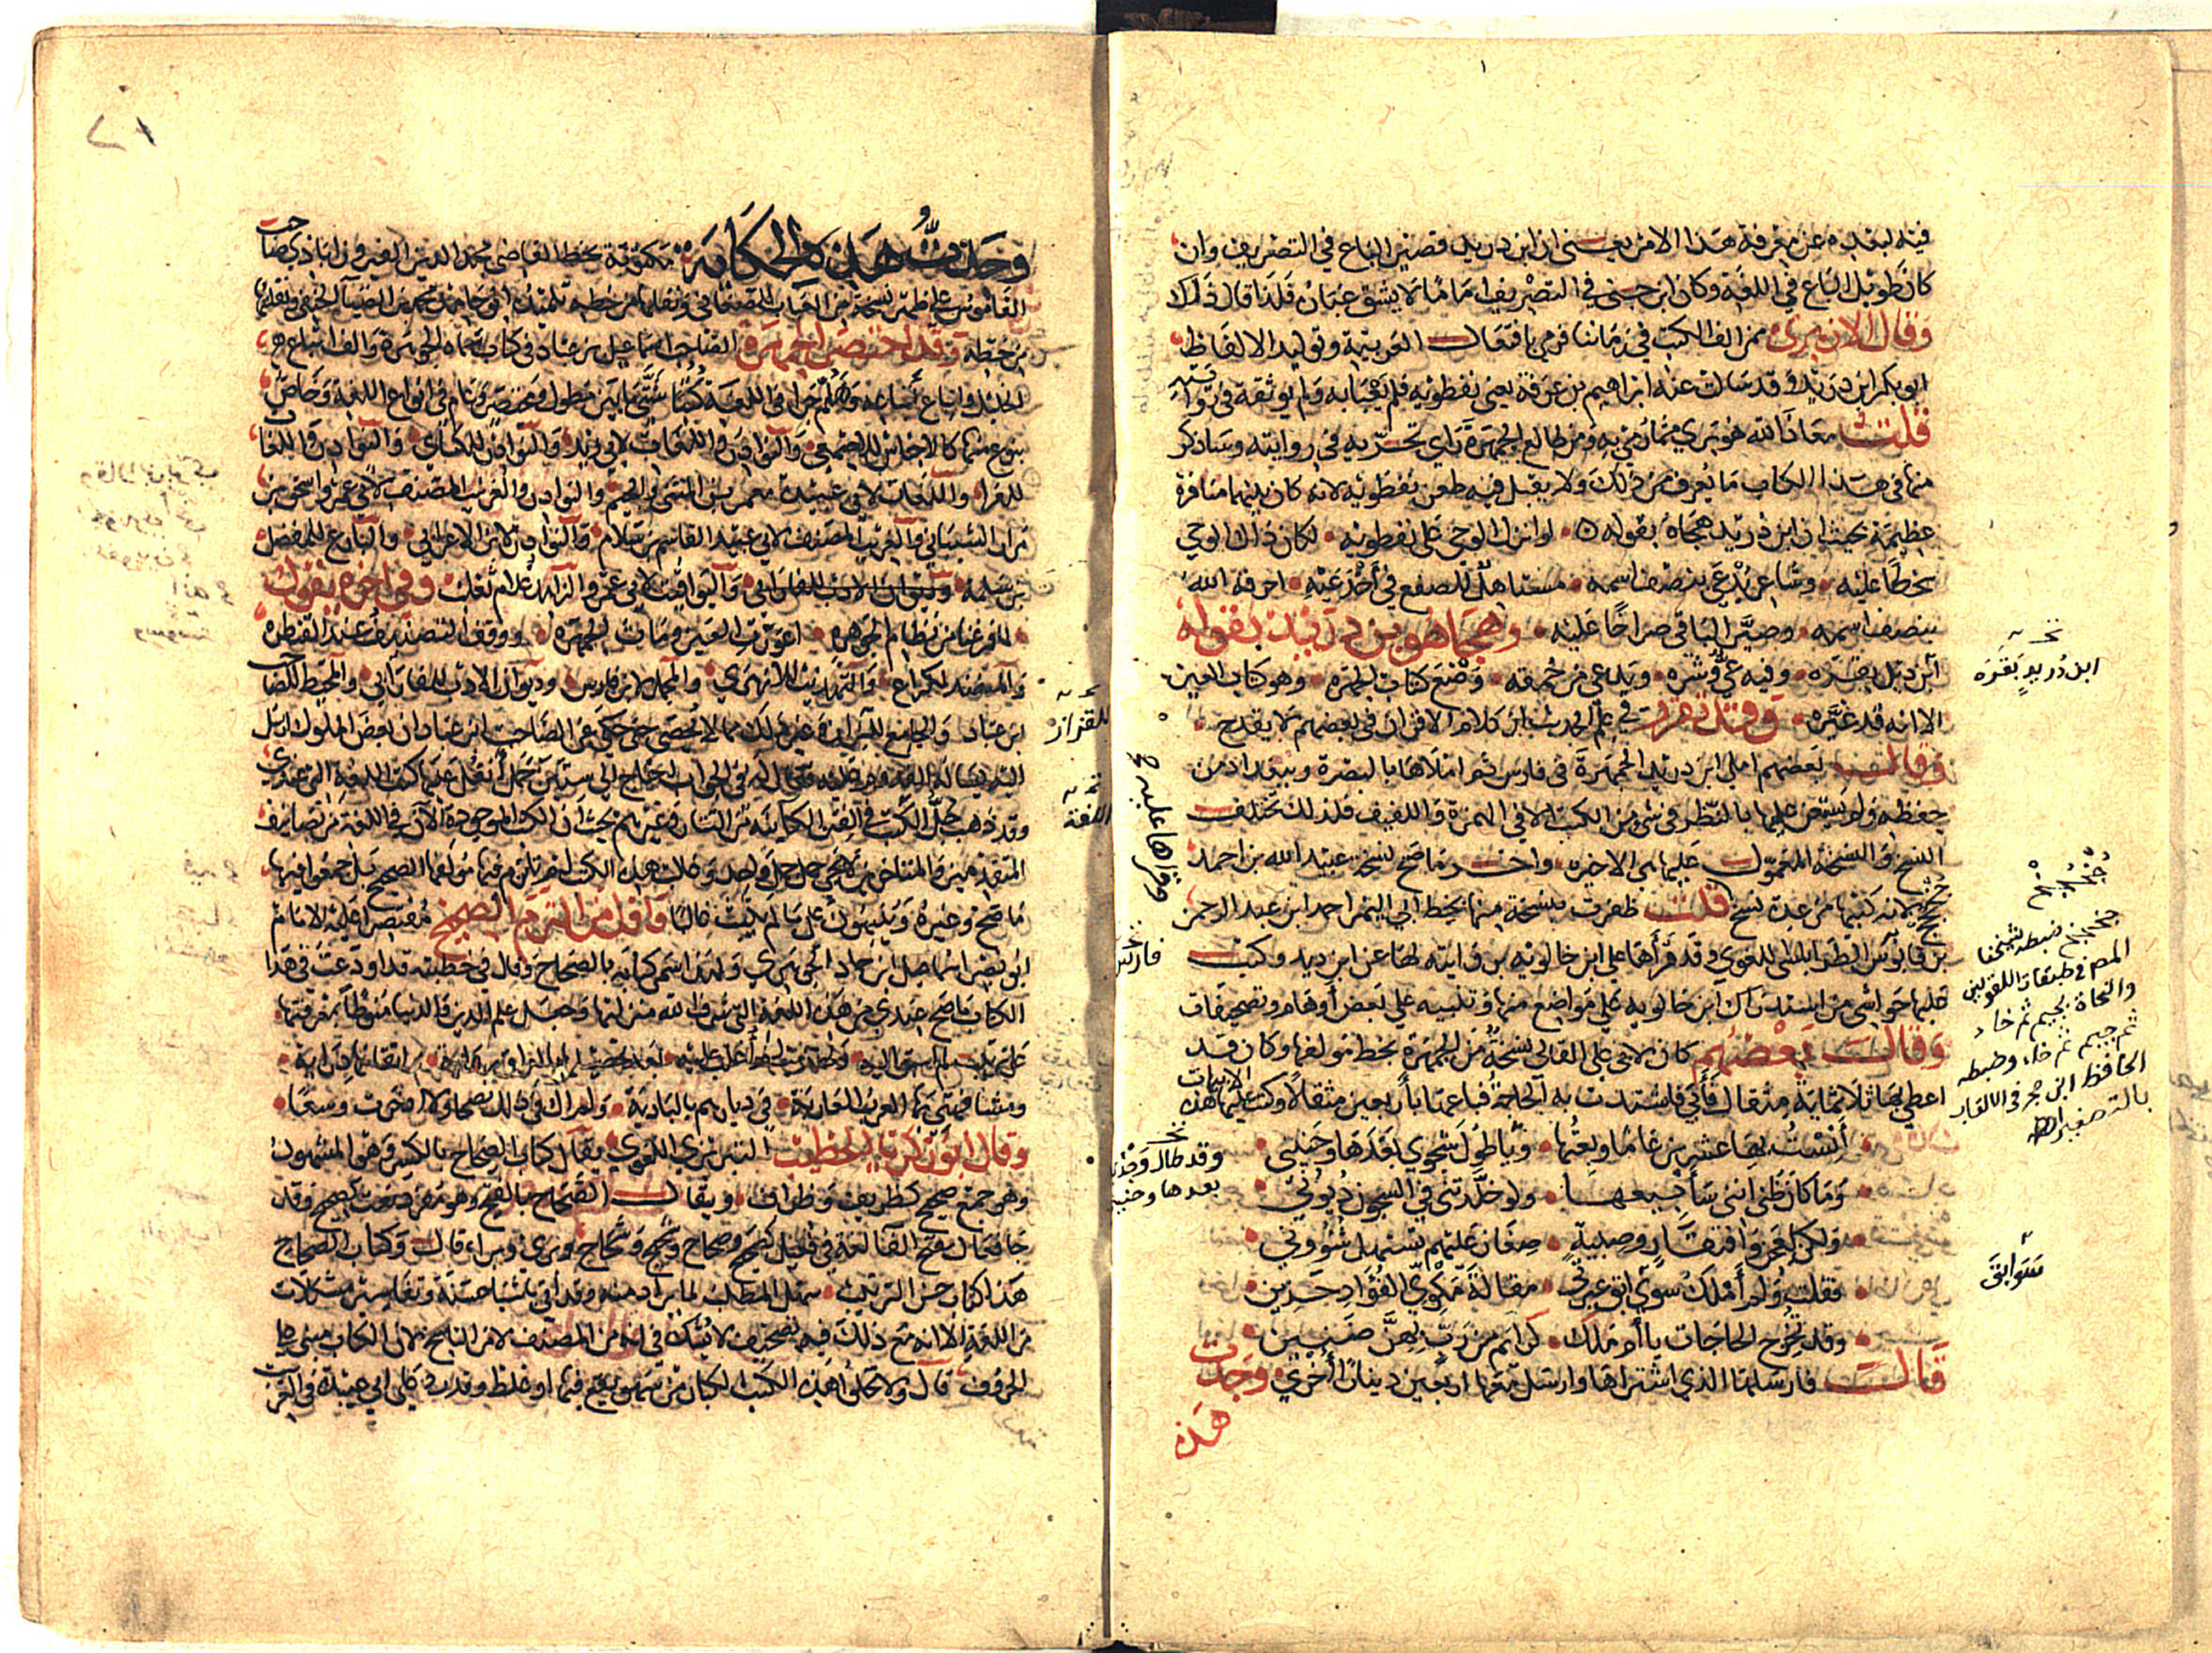 فيه لبعده عن معرفة هذا الامر يعني ان ابن دريد قصير الباع في التصريف وان
كان طويل الباع في اللغة وكان ابن جني في التصريف اماما لا يشق غباره فلذا قال ذلك
وقال الازهري ممن الف الكتب في زماننا فرمي بافتعال العربية وتوليد الالفاظ
ابو بكر ابن دريد وقد سالت عنه ابراهيم بن عرفة يعني نفطويه فلم يعبا به ولم يوثقه في روايته
قلت معاذ الله هو بري مما رمي به ومن طالع الجمهرة راي تحريه في روايته وساذكر
منها في هذا الكتاب ما يعرف من ذلك ولا يقبل فيه طعن نفطويه لانه كان بينهما منافرة
عظيمة بحيث ان ابن دريد هجاه بقوله لو انزل الوحي على نفطويه لكان ذاك الوحي
سخطا عليه وشاعر يدعى بنصف اسمه مستاهل للصفع في اخدعيه احرقه الله
بنصف اسمه وصير الباقي صراخا عليه وهجا هو ابن دريد بقوله
ابن دريد بقره وفيه عي وشره ويدعي من حمقه وضع كتاب الجمهره وهو كتاب العين
الا انه قد غيره وقد تقرر في علم الحديث ان كلام الاقران في بعضهم لا يقدح
وقال بعضهم املى ابن دريد الجمهرة في فارس ثم املاها بالبصرة وببغداد من
حفظه ولم يستعن عليها بالنظر في شي من الكتب الا في الهمزة واللفيف فلذلك تختلف
النسخ والنسخة المعول عليها هي الاخيرة واخر ما صح نسخة عبيد الله بن احمد
جخجخ لانه كتبها من عدة نسخ قلت ظفرت بنسخة منها بخط ابي النمر احمد ابن عبد الرحمن
بن قابوس الطرابلسي اللغوي وقد قرأها على ابن خالويه بروايته لها عن ابن دريد وكتب
عليها حواشي من استدراك ابن خالويه على مواضع منها وتنبيه على بعض أوهام وتصحيفات
وقال بعضهم كان لابي علي القالي نسخة من الجمهرة بخط مولفها وكان قد
اعطي بها ثلاثماية مثقال فأبي فاشتدت به الحاجة فباعها بأربعين مثقالا وكتب عليها هذه الابيات
أنست بها عشرين عاما وبعتها وقد طال وجدي بعدها وحنيني
وما كان ظني انني سأبيعها ولو خلدتني في السجون ديوني
ولكن لعجز وافتقار وصبية صغار عليهم تستهل شووني
فقلت ولم أملك سوابق عبرتي مقالة مكوي الفؤاد حزين
وقد تخرج الحاجات يا أم مالك كرائم من رب بهن ضنين
قال فارسلها الذي اشتراها وارسل معها اربعين دينارا أخري وجدت
هذه
ابن دريد بقره
سوابق
وجدت هذه الحكاية مكتوبة بخط القاضي مجد الدين الفيروزاباذي صاحب
القاموس على ظهر نسخة من العباب للصغاني ونقلها من خطه تلميذه ابو حامد محمد بن الضيا الحنفي ونقلتها
من خطه وقد اختصر الجمهرة الصاحب اسماعيل بن عباد في كتاب سماه الجوهرة والف اتباع
الخليل واتباع أتباعه وهلم جرا في اللغة كتبا شتى ما بين مطول ومختصر وعام في انواع اللغة وخاص
بنوع منها كالاجناس للاصمعي والنوادر واللغات لابي زيد والنوادر للكسائي والنوادر واللغات
للفرا واللغات لابي عبيدة معمر بن المثنى والجيم والنوادر والغريب المصنف لابي عمرو اسحق بن
مرار الشيباني والغريب المصنف لابي عبيد القاسم بن سلام والنوادر لابن الاعرابي والبارع للمفضل
بن سلمة وديوان الادب للفارابي واليواقيت لابي عمرو الزاهد غلام ثعلب وفي اخره يقول
اعورت العين ومات الجمهره ووقف التصنيف عند القنطره
والمنضد لكراع والتهذيب للازهري والمجمل لابن فارس وديوان الادب للفارابي والمحيط للصاحب
ابن عباد والجامع للقزاز وغير ذلك مما لا يحصى حتى حكي عن الصاحب ابن عباد ان بعض الملوك ارسل
اليه يساله القدوم عليه فقال له في الجواب احتاج الى ستين جملا أنقل عليها كتب اللغة التي عندي
وقد ذهب جل الكتب في الفتن الكاينة من التتار وغيرهم بحيث ان الكتب الموجودة الآن في اللغة من تصانيف
المتقدمين والمتاخرين لا تجي حمل جمل واحد وغالب هذه الكتب لم يلتزم فيها مولفوها الصحيح بل جمعوا فيها
ما صح وغيره وينبهون على ما لم يثبت غالبا وأول من التزم الصحيح مقتصرا عليه الامام
ابو نصر اسماعيل بن حماد الجوهري ولهذا سمى كتابه بالصحاح وقال في خطبته قد اودعت في هذا
الكتاب ما صح عندي من هذه اللغة التي شرف الله منزلتها وجعل علم الدين والدنيا منوطا بمعرفتها
على ترتيب لم اسبق اليه وتهذيب لم أغلب عليه بعد تحصيلها بالعراق رواية واتقانها دراية
ومشافهتي بها العرب العاربة في ديارهم بالبادية ولم آل في ذلك نصحا ولا ادخرت وسعا
وقال ابو زكريا الخطيب التبريزي اللغوي يقال كتاب الصحاح بالكسر وهو المشهور
وهو جمع صحيح كظريف وظراف ويقال الصحاح بالفتح وهو مفرد نعت كصحيح وقد
جا فعال بفتح الفا لغة في فعيل كصحيح وصحاح وشحيح وشحاح وبري وبراء قال وكتاب الصحاح
هذا كتاب حسن الترتيب سهل المطلب لما يراد منه وقد أتى باشيا حسنة وتفاسير مشكلات
من اللغة الا انه مع ذلك فيه تصحيف لا يشك في انه من المصنف لا من الناسخ لان الكتاب مبني على
الحروف قال ولا تخلو هذه الكتب الكبار من سهو يقع فيها او غلط وقد رد على ابي عبيدة في الغريب
للقزاز
اللغة